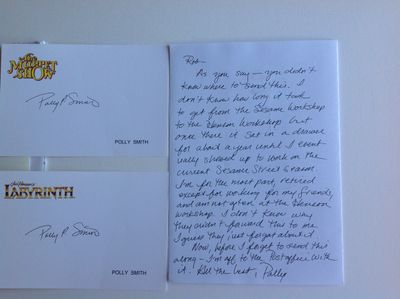 THE MUPPET SHOW
Polly P. Smith
POLLY SMITH
Jim Henson's
LABYRINTH
Polly P. Smith
POLLY SMITH
Rob-
As you say - you didn't
know where to send this. I
don't know how long it took
to get from the Sesame Workshop
to the Henson Workshop but
once there it sat in a drawer
for about a year until I event-
ually showed up to work on the
current Sesame Street season.
I'm for the most part, retired
except for working for my friends,
and am not often at the Henson
workshop. I don't know why
they didn't forward this to me
I guess they just forgot about it.
Now, before I forget to send this
along - I'm off to the Post office with
it. All the best, Polly